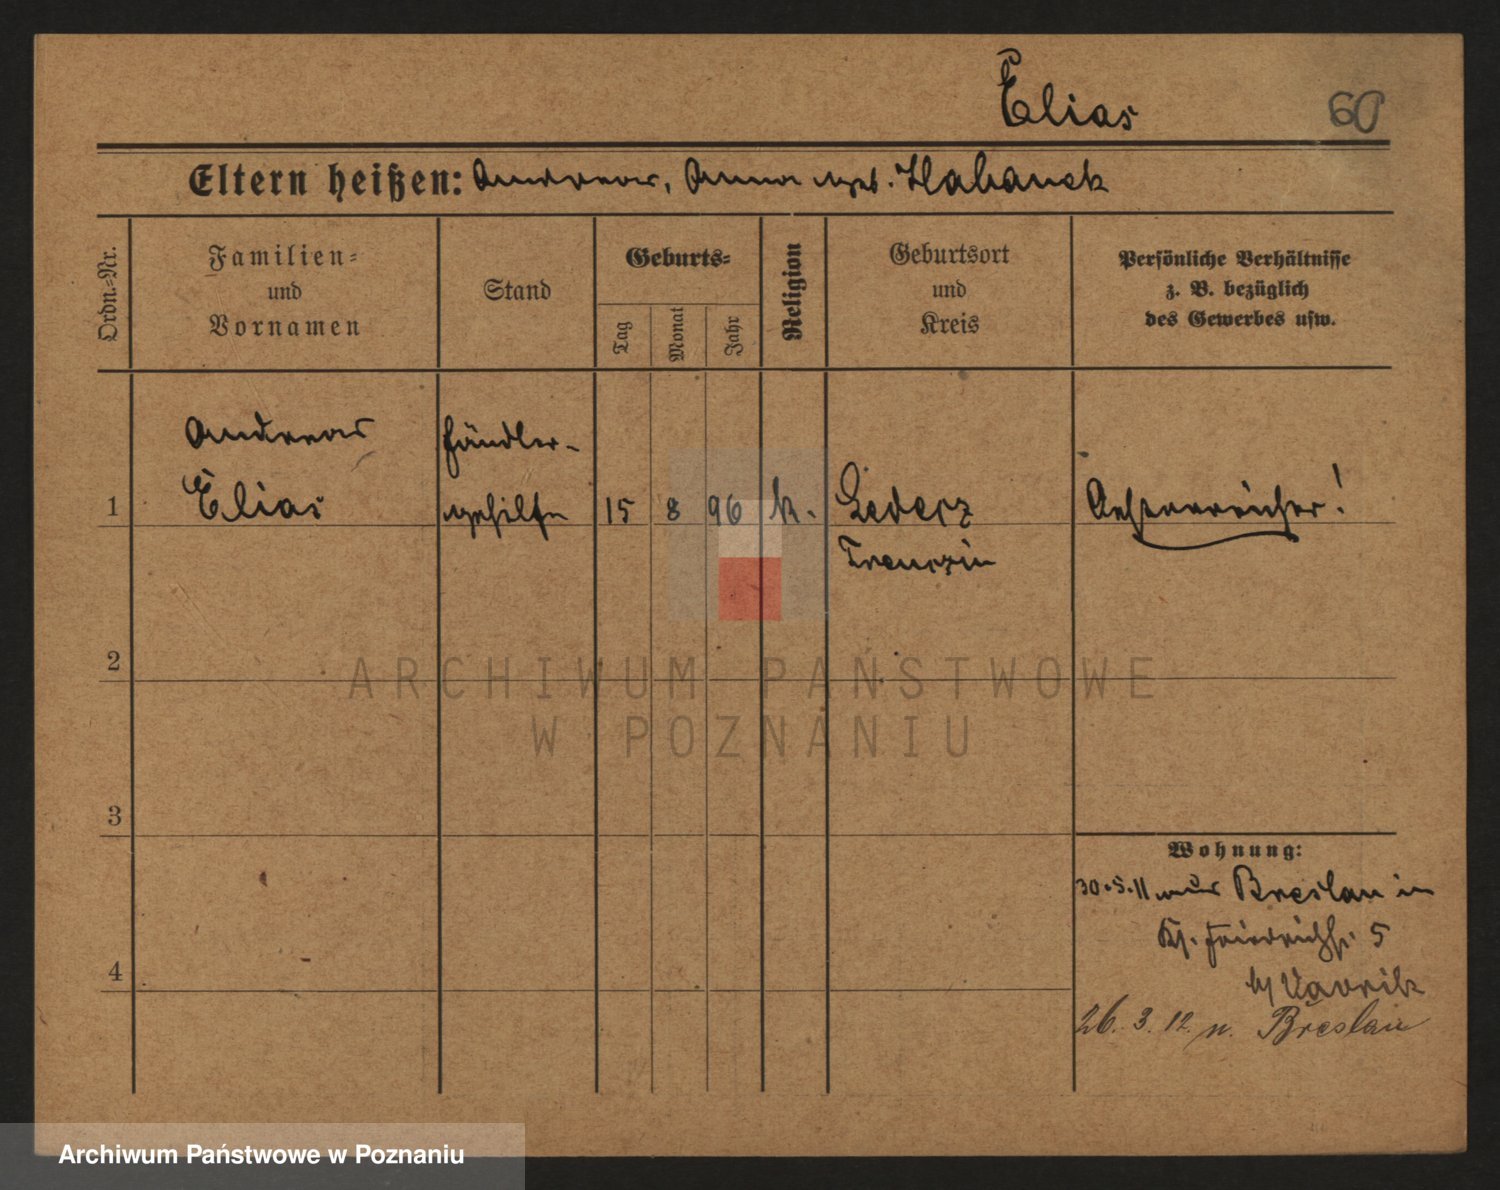 Elias 60
Eltern heißen: Andreas, Anna geb. Habanek
Ordn.-Nr.
Familien-
und
Vornamen
Stand
Geburts-
Tag
Monat
Jahr
Religion
Geburtsort
und
Kreis
Persönliche Verhältnisse
z. B. bezüglich
des Gewerbes usw.
Andreas Händler-
1 Elias gehilfe 15 8 96 k. Lederz Oesterreicher!
Trenczin
2
ARCHIWUM PAŃSTWOWE
W POZNANIU
3
Wohnung:
30.5.11 aus Breslau in
Friedrichstr. 5
b/ Vavrik
4
26. 3. 12. n. Breslau
Archiwum Państwowe w Poznaniu